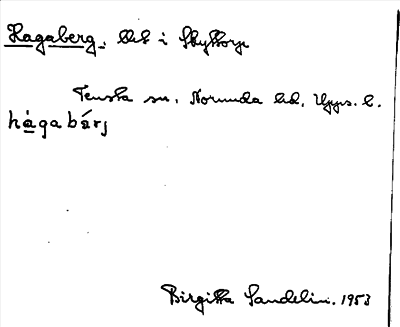 Hagaberg, lht i Skyttorp
Tensta sn. Norunda hd, Upps. l.
hágabárj
Birgitta Sandelin. 1953